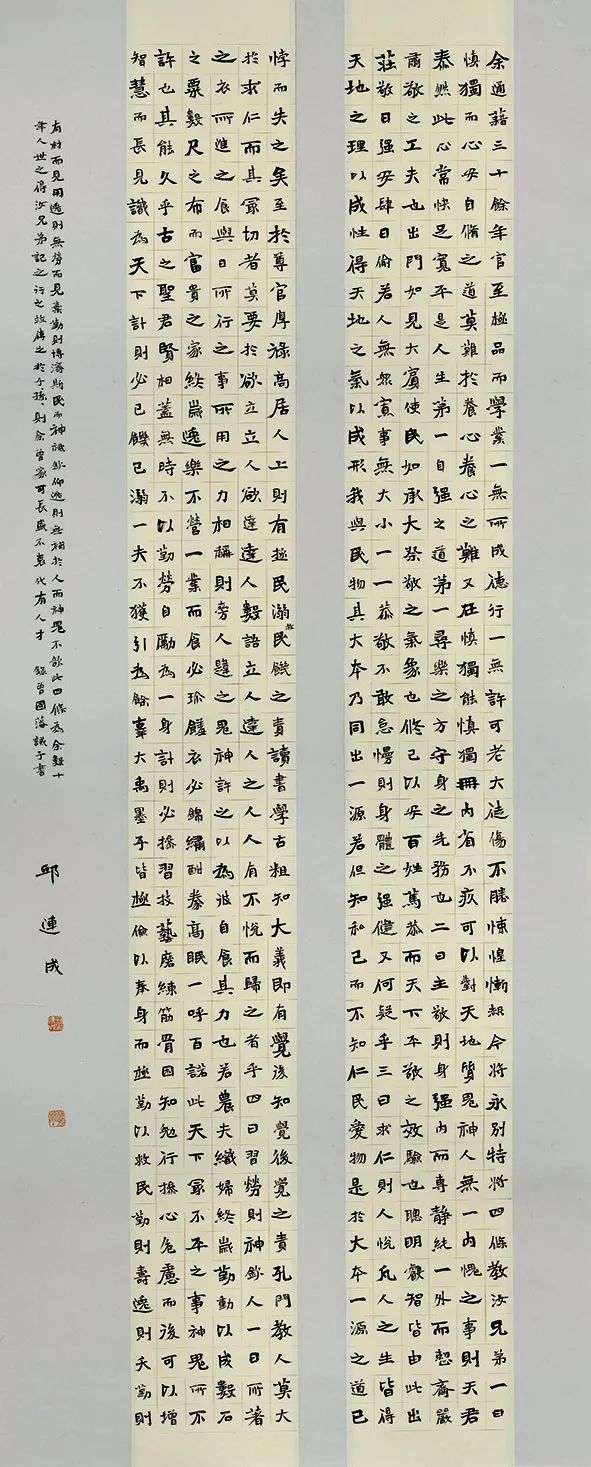 余通籍三十餘年官至極品而學業一無所成德行一無許可老大徒傷不勝悚惶慚赧今將永別特將四條教汝兄弟一曰
慎獨而心安自修之道莫難於養心養心之難又在慎獨能慎獨則內省不疚可以對天地質鬼神人無一內愧之事則天君
泰然此心常快足寬平是人生第一自強之道第一尋樂之方守身之先務也二曰主敬則身強內而專靜純一外而整齊嚴
肅敬之工夫也出門如見大賓使民如承大祭敬之氣象也修己以安百姓篤恭而天下平敬之效驗也聰明睿智皆由此出
莊敬日強安肆日偷若人無眾寡事無大小一一恭敬不敢怠慢則身體之強健又何疑乎三曰求仁則人悅凡人之生皆得
天地之理以成性得天地之氣以成形我與民物其大本乃同出一源若但知私己而不知仁民愛物是於大本一源之道已
悖而失之矣至於尊官厚祿高居人上則有拯民溺救民飢之責讀書學古粗知大義即有覺後知覺後覺之責孔門教人莫大
於求仁而其最切者莫要於欲立立人欲達達人數語立人達人之人人有不悅而歸之者乎四曰習勞則神欽人一日所著
之衣所進之食與日所行之事所用之力相稱則旁人韙之鬼神許之以為彼自食其力也若農夫織婦終歲勤動以成數石
之粟數尺之布而富貴之家終歲逸樂不營一業而食必珍饈衣必錦繡酣豢高眠一呼百諾此天下最不平之事神鬼所不
許也其能久乎古之聖君賢相蓋無時不以勤勞自勵為一身計則必操習技藝磨練筋骨困知勉行操心危慮而後可以增
智慧而長見識為天下計則必己饑己溺一夫不獲引為餘辜大禹墨子皆極儉以奉身而極勤以救民勤則壽逸則夭勤則
有材而見用逸則無勞而見棄勤則博濟斯民而神祇欽仰逸則無補於人而神鬼不歆此四條為余數十
年人世之得汝兄弟記之行之並傳之於子孫則余曾家可長盛不衰代有人才 錄曾國藩誡子書
邱連成